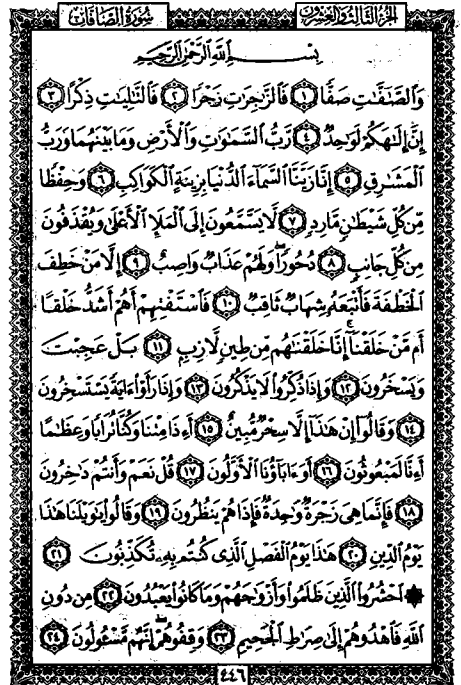 سُورَةُ الصَّافَّاتِ
الجُزءُ الثَّالِثُ وَالعِشرُونَ
بِسْمِ اللَّهِ الرَّحْمَٰنِ الرَّحِيمِ
وَالصَّافَّاتِ صَفًّا ١ فَالزَّاجِرَاتِ زَجْرًا ٢ فَالتَّالِيَاتِ ذِكْرًا ٣
إِنَّ إِلَٰهَكُمْ لَوَاحِدٌ ٤ رَّبُّ السَّمَاوَاتِ وَالْأَرْضِ وَمَا بَيْنَهُمَا وَرَبُّ
الْمَشَارِقِ ٥ إِنَّا زَيَّنَّا السَّمَاءَ الدُّنْيَا بِزِينَةٍ الْكَوَاكِبِ ٦ وَحِفْظًا
مِّن كُلِّ شَيْطَانٍ مَّارِدٍ ٧ لَّا يَسَّمَّعُونَ إِلَى الْمَلَإِ الْأَعْلَىٰ وَيُقْذَفُونَ
مِن كُلِّ جَانِبٍ ٨ دُحُورًا وَلَهُمْ عَذَابٌ وَاصِبٌ ٩ إِلَّا مَنْ خَطِفَ
الْخَطْفَةَ فَأَتْبَعَهُ شِهَابٌ ثَاقِبٌ ١٠ فَاسْتَفْتِهِمْ أَهُمْ أَشَدُّ خَلْقًا
أَم مَّنْ خَلَقْنَا إِنَّا خَلَقْنَاهُم مِّن طِينٍ لَّازِبٍ ١١ بَلْ عَجِبْتَ
وَيَسْخَرُونَ ١٢ وَإِذَا ذُكِّرُوا لَا يَذْكُرُونَ ١٣ وَإِذَا رَأَوْا ءَايَةً يَسْتَسْخِرُونَ
١٤ وَقَالُوا إِنْ هَٰذَا إِلَّا سِحْرٌ مُّبِينٌ ١٥ أَءِذَا مِتْنَا وَكُنَّا تُرَابًا وَعِظَامًا
أَءِنَّا لَمَبْعُوثُونَ ١٦ أَوَءَابَاؤُنَا الْأَوَّلُونَ ١٧ قُلْ نَعَمْ وَأَنتُمْ دَاخِرُونَ
١٨ فَإِنَّمَا هِيَ زَجْرَةٌ وَاحِدَةٌ فَإِذَا هُمْ يَنظُرُونَ ١٩ وَقَالُوا يَا وَيْلَنَا هَٰذَا
يَوْمُ الدِّينِ ٢٠ هَٰذَا يَوْمُ الْفَصْلِ الَّذِي كُنتُم بِهِ تُكَذِّبُونَ ٢١
۞ احْشُرُوا الَّذِينَ ظَلَمُوا وَأَزْوَاجَهُمْ وَمَا كَانُوا يَعْبُدُونَ ٢٢ مِن دُونِ
اللَّهِ فَاهْدُوهُمْ إِلَىٰ صِرَاطِ الْجَحِيمِ ٢٣ وَقِفُوهُمْ إِنَّهُم مَّسْئُولُونَ ٢٤
٤٤٦